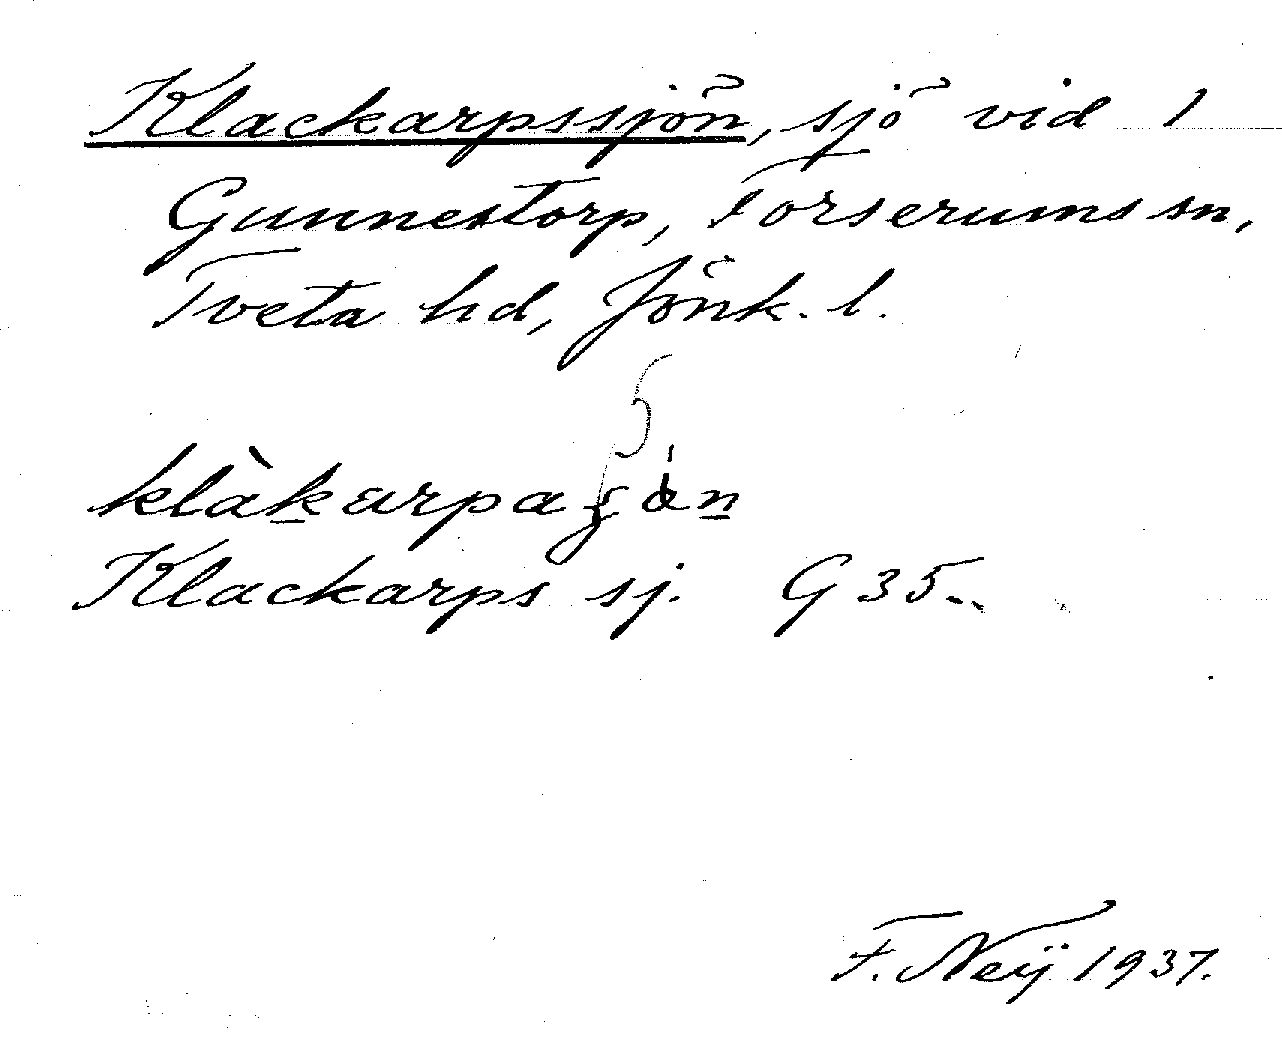 Klackarpssjön, sjö vid 1
Gunnestorp, Forserums sn,
Tveta hd, Jönk. l.
Klackarps sj. G 35.
F. Neÿ 1937.